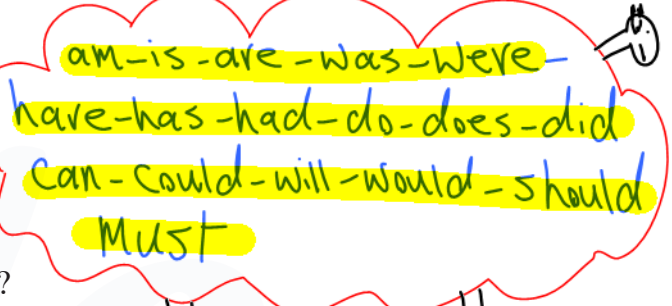 am-is-are-was-were-
have-has-had-do-does-did
can-could-will-would-should
Must
?